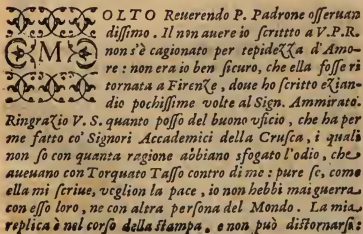 MOLTO Reuerendo P. Padrone osseruan
dissimo. Il non auere io scrittto a V.P.R.
non s'è cagionato per tepidezza d'Amo-
re: non era io ben sicuro, che ella fosse ri
tornata a Firenze, doue ho scritto eZian-
dio pochissime volte al Sign. Ammirato.
Ringrazio V. S. quanto posso del buono vficio, che ha per
me fatto co' Signori Accademici della Crusca, i quali
non so con quanta ragione abbiano sfogato l'odio, che
aueuano con Torquato Tasso contro di me: pure se, come
ella mi scriue, vcglion la pace, io non hebbi mai guerra
con esso loro, ne con altra persona del Mondo. La mia
replica è nel corso della stampa, e non può distornarsi: